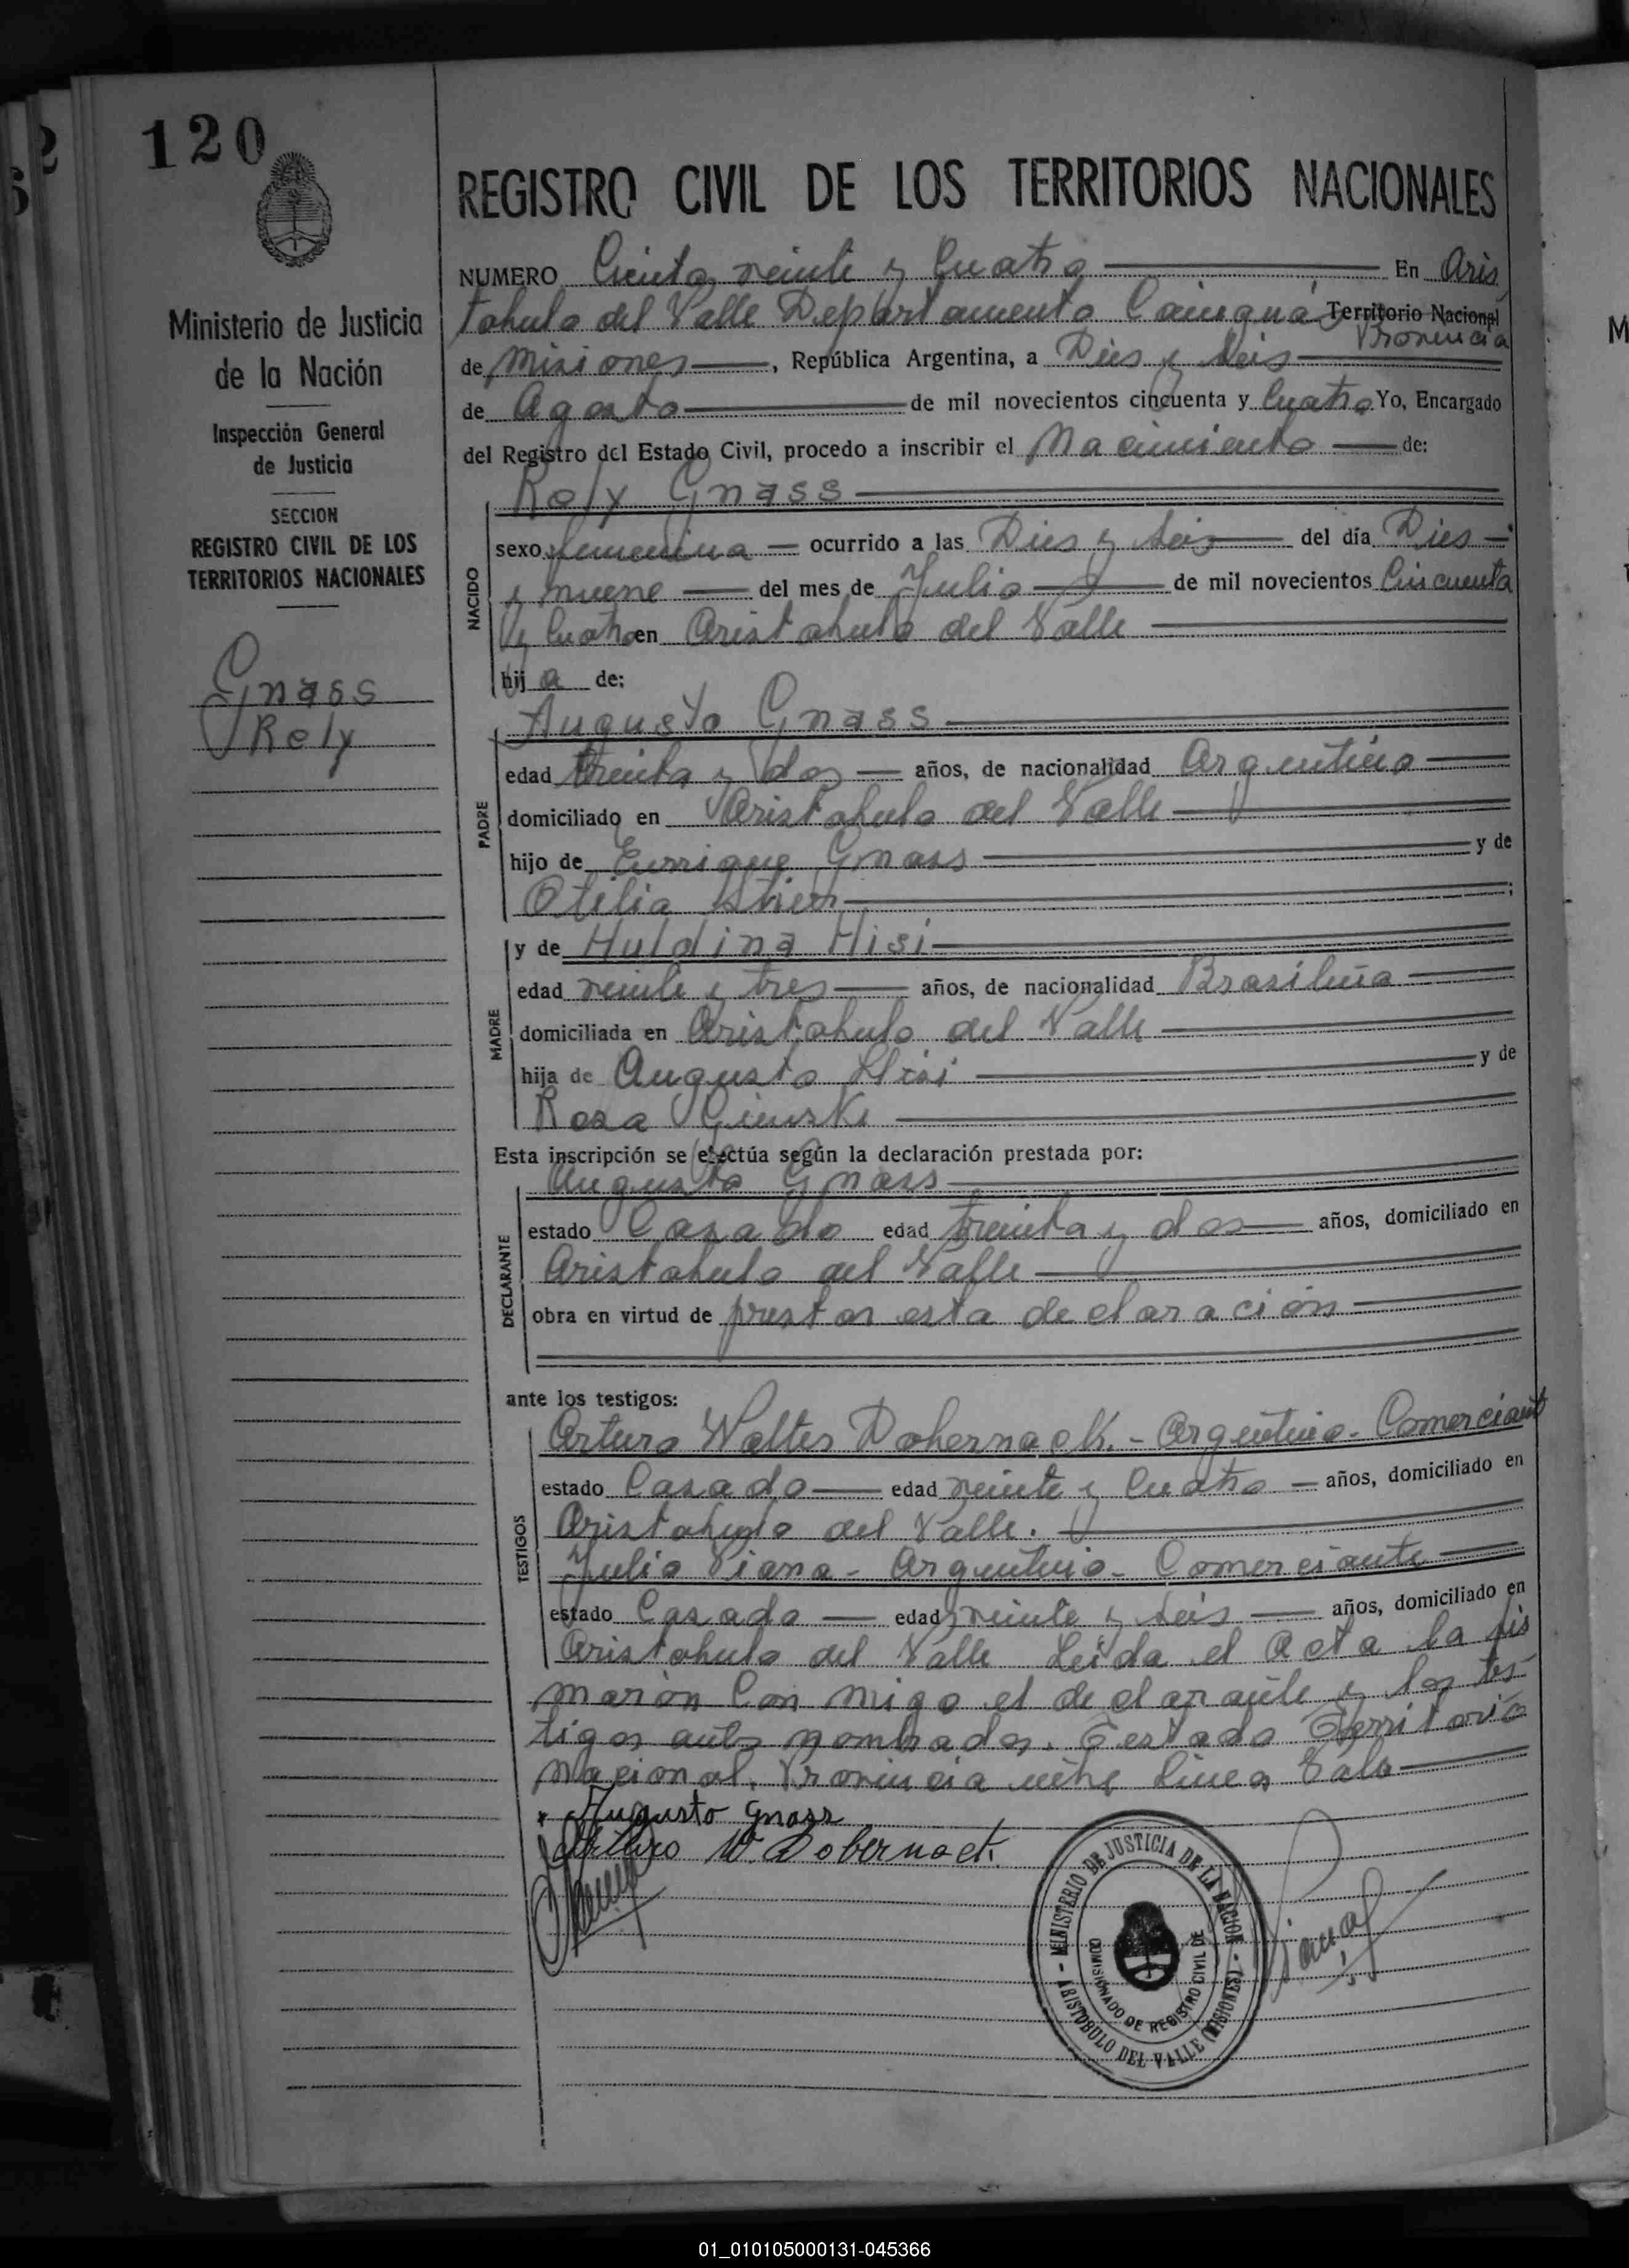 120
REGISTRO CIVIL DE LOS TERRITORIOS NACIONALES
Ministerio de Justicia
de la Nación
Inspección General
de Justicia
SECCION
REGISTRO CIVIL DE LOS
TERRITORIOS NACIONALES
Gnass
Rely
NUMERO Ciento veinte y Cuatro En Aris
tobulo del Valle Departamento Cainguás Territorio Nacional
Provincia
de Misiones, República Argentina, a Dies y Seis
de Agosto de mil novecientos cincuenta y Cuatro Yo, Encargado
del Registro del Estado Civil, procedo a inscribir el Nacimiento de:
Rely Gnass
NACIDO
sexo femenina ocurrido a las Dies y Seis del día Dies
y nueve del mes de Julio de mil novecientos Cincuenta
y Cuatro en Aristobulo del Valle
hija de:
PADRE
Augusto Gnass
edad treinta y dos años, de nacionalidad Argentino
domiciliado en Aristobulo del Valle
hijo de Enrrique Gnass y de
Otilia
MADRE
y de Huldina Hisi
edad veinte y tres años, de nacionalidad Brasileña
domiciliada en Aristobulo del Valle
hija de Augusto Hisi y de
Rosa
Esta inscripción se efectúa según la declaración prestada por:
DECLARANTE
Augusto Gnass
estado Casado edad treinta y dos años, domiciliado en
Aristobulo del Valle
obra en virtud de prestar esta declaración
ante los testigos:
TESTIGOS
Arturo Walter Dobernack. - Argentino - Comerciante
estado Casado edad veinte y Cuatro años, domiciliado en
Aristobulo del Valle.
Julio Viana - Argentino - Comerciante
estado Casado edad veinte y Seis años, domiciliado en
Aristobulo del Valle Leida el Acta la fir
maron Con migo el declarante y los tes-
tigos antes nombrados. Testado Territorio
Nacional. Provincia entre lineas Vale
Augusto Gnass
Arturo W. Dobernack.
MINISTERIO DE JUSTICIA DE LA NACION - ARISTOBULO DEL VALLE (MISIONES) -
COMISIONADO DE REGISTRO CIVIL DE
01_010105000131-045366